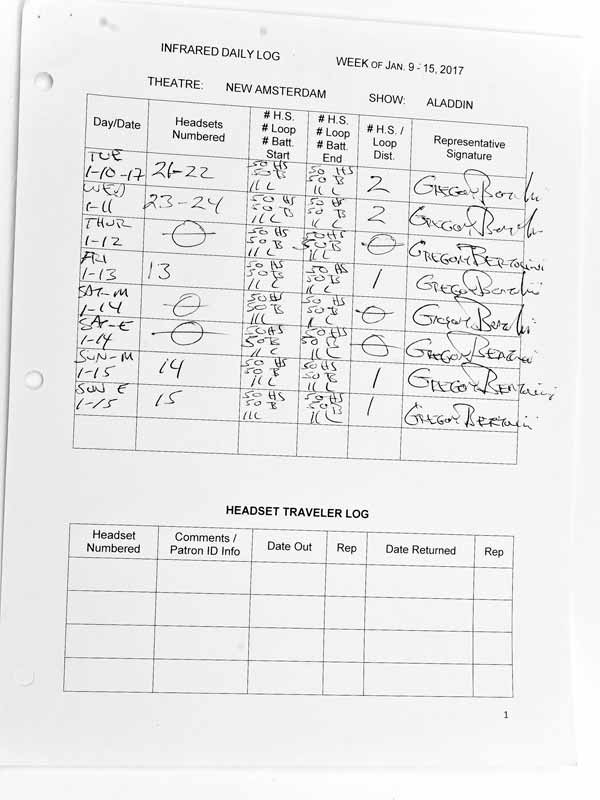 INFRARED DAILY LOG WEEK OF JAN. 9 - 15, 2017
THEATRE: NEW AMSTERDAM SHOW: ALADDIN
Day/Date Headsets Numbered # H.S. # Loop # Batt. Start # H.S. # Loop # Batt. End # H.S. / Loop Dist. Representative Signature
TUE 1-10-17 21-22 50 HS 50 B 11 L 50 HS 50 B 11 L 2 GREGORY Bertolini
WED 1-11 23-24 50 HS 50 B 11 L 50 HS 50 B 11 L 2 GREGORY Bertolini
THUR 1-12 0 50 HS 50 B 11 L 50 HS 50 B 11 L 0 GREGORY BERTOLINI
FRI 1-13 13 50 HS 50 B 11 L 50 HS 50 B 11 L 1 GREGORY Bertolini
SAT-M 1-14 0 50 HS 50 B 11 L 50 HS 50 B 11 L 0 GREGORY Bertolini
SAT-E 1-14 0 50 HS 50 B 11 L 50 HS 50 B 11 L 0 GREGORY BERTOLINI
SUN-M 1-15 14 50 HS 50 B 11 L 50 HS 50 B 11 L 1 GREGORY BERTOLINI
SUN E 1-15 15 50 HS 50 B 11 L 50 HS 50 B 11 L 1 GREGORY BERTOLINI
HEADSET TRAVELER LOG
Headset Numbered Comments / Patron ID Info Date Out Rep Date Returned Rep
1